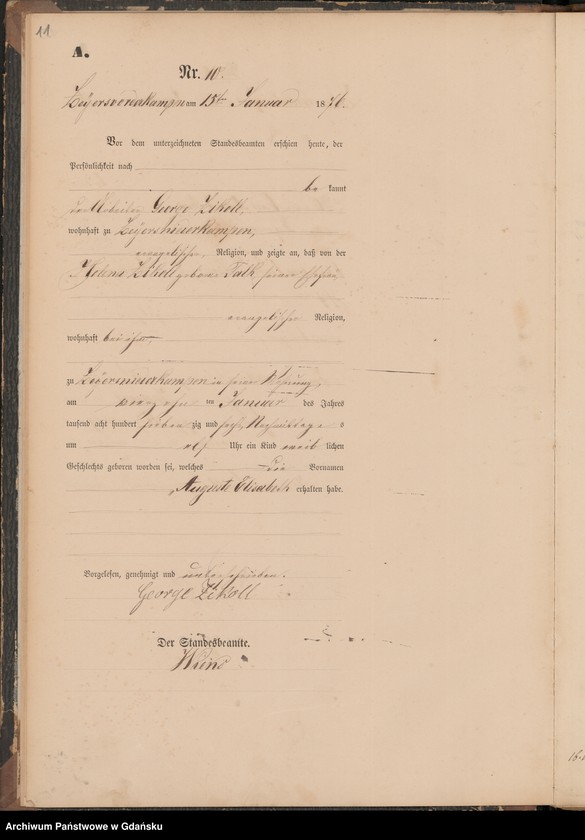 11
A.
Nr. 10.
Zeyersvorderkampen am 15ten Januar 1876.
Vor dem unterzeichneten Standesbeamten erschien heute, der
Persönlichkeit nach
be kannt
der Arbeiter George Zikoll,
wohnhaft zu Zeyersniederkampen,
evangelischer Religion, und zeigte an, daß von der
Helena Zikoll geborne Falk, seiner Ehefrau
evangelischer Religion,
wohnhaft bei ihm,
zu Zeyersniederkampen in seiner Wohnung,
am im Januar des Jahres
tausend acht hundert sieben zig und sechs, Nachmittags
um elf Uhr ein Kind weib lichen
Geschlechts geboren worden sei, welches die Vornamen
Auguste Elisabeth erhalten habe.
Vorgelesen, genehmigt und unterschrieben.
George Zikoll
Der Standesbeamte.
Archiwum Państwowe w Gdańsku